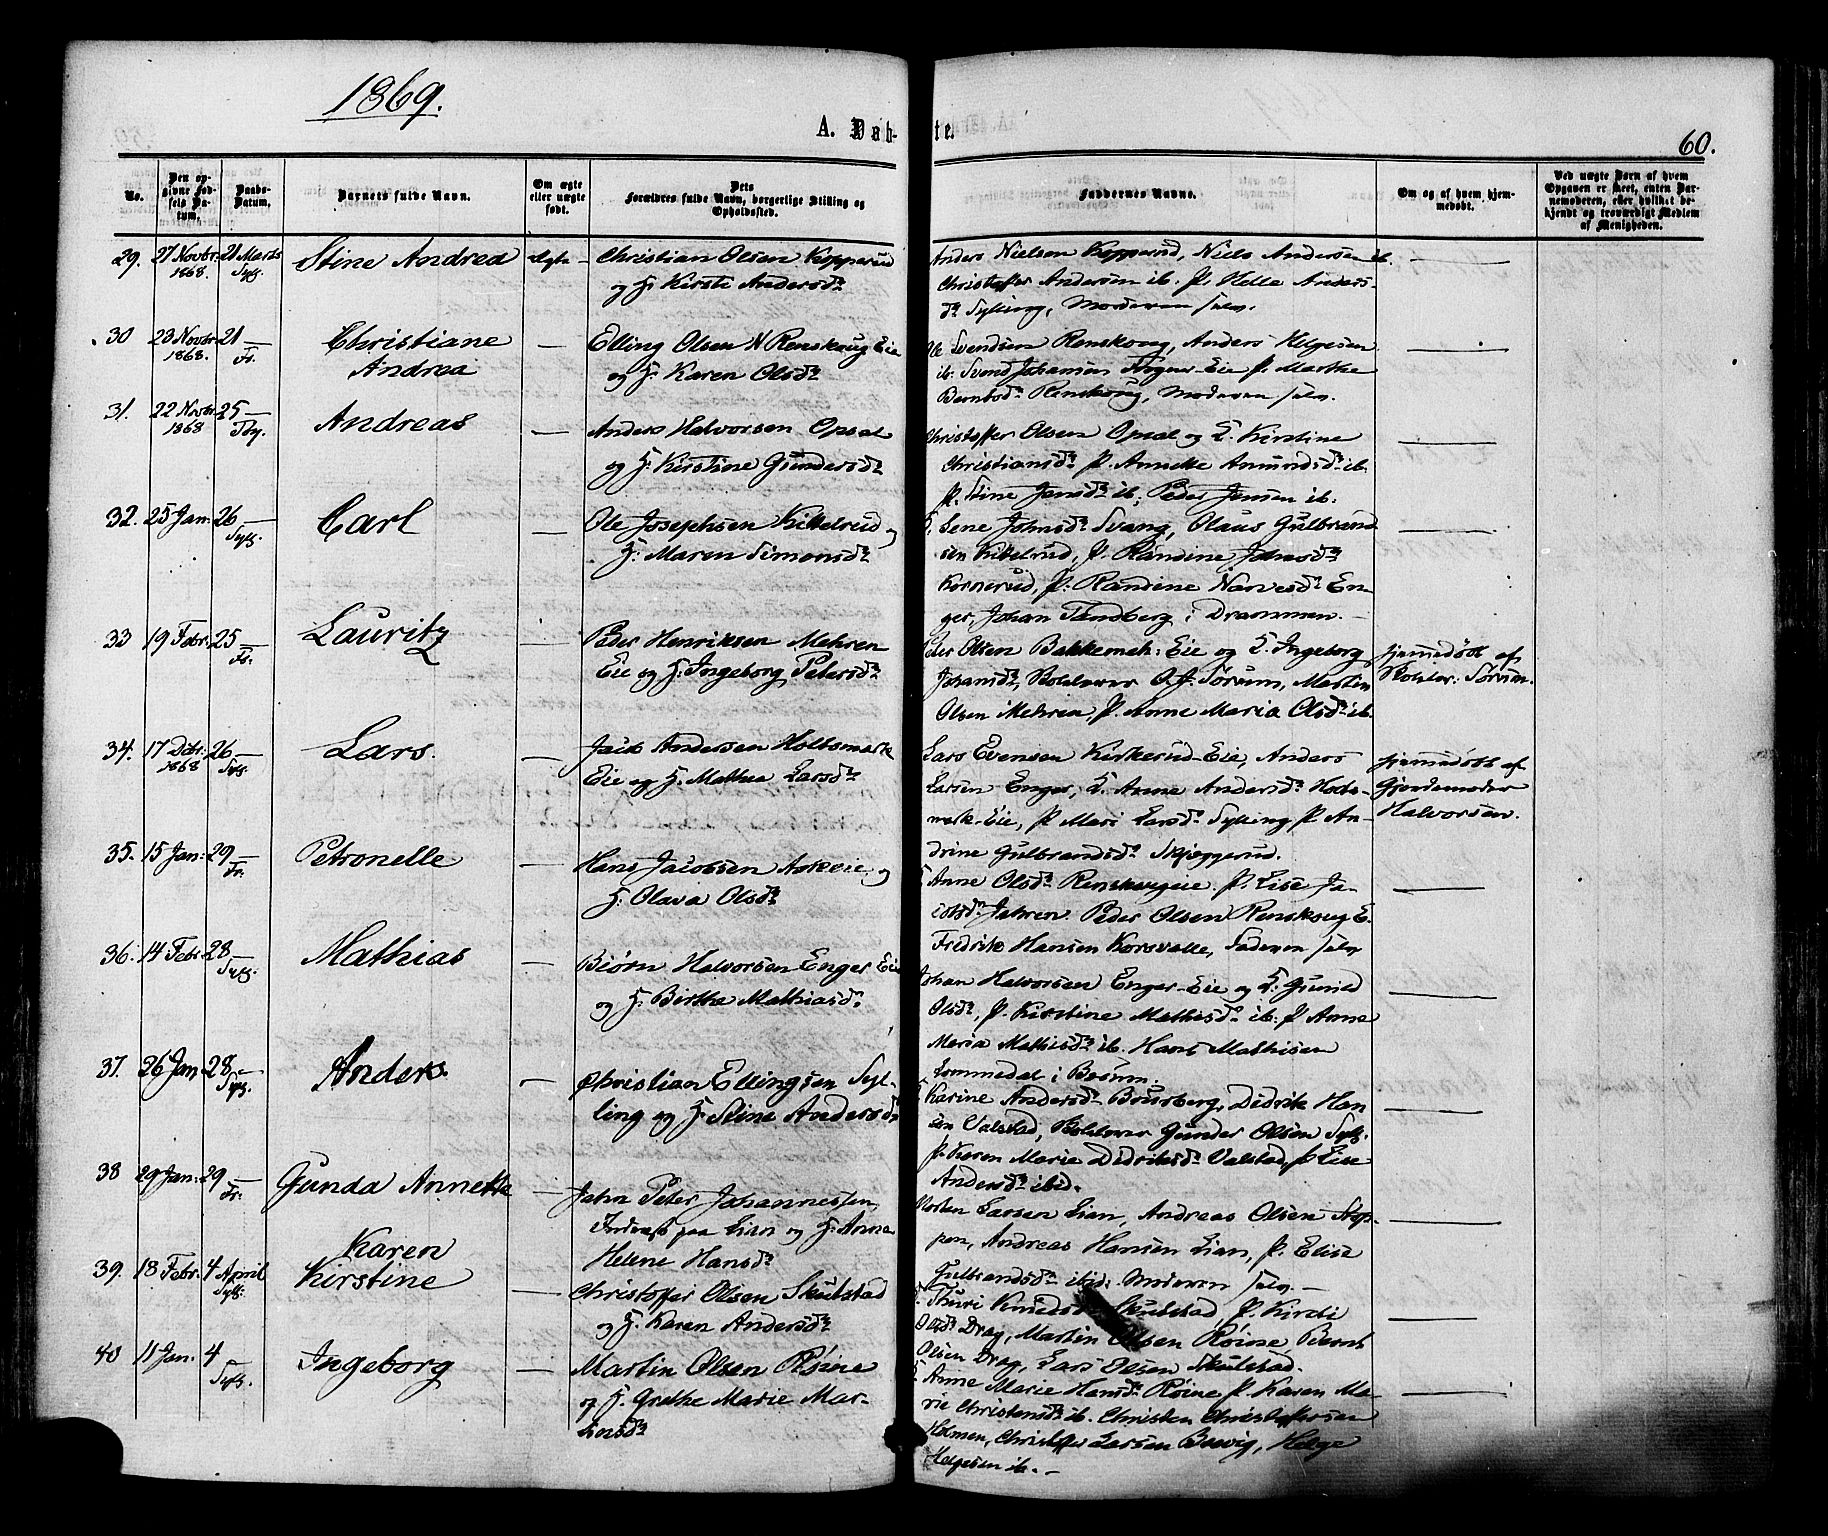 1869.
A. Døbte.
60.
No.
Den opgivne Fødsels Datum.
Daabs-Datum.
Barnets fulde Navn.
Om ægte eller uægte født.
Dets Forældres fulde Navn, borgerlige Stilling og Opholdssted.
Faddernes Navne.
Om og af hvem hjemmedøbt.
Ved uægte Børn af hvem Opgaven er skeet, enten Barnemoderen, eller hvilket bekjendt og troværdigt Medlem af Menigheden.
29. 27 Novbr 1868. 21 Marts Syll. Stine Andrea Ægte
Christian Olsen Kopperud
og H. Kirsti Andersdr
Anders Nielsen Kopperud, Niels Andersen ib.
Christoffer Andersen ib: P. Helle Anders-
dr Sylling, Moderen selv.
30 23 Novbr 1868. 21 Fr. Christiane Andrea —
Elling Olsen N Renskoug Eie
og H. Karen Olsdr
Ole Svendsen Renskoug, Anders Helgesen
ib: Svend Johansen Eie P. Marthe
Berntsdr Renskoug, Moderen selv.
31. 22 Novbr 1868 25 — Andreas —
Anders Halvorsen Opsal
og H. Kirstine Gundersdr
Christoffer Olsen Opsal og K. Kirstine
Christiansdr P. Annette Amundsdr ib.
P. Stine Jensdr ib; Peder Jensen ib.
32. 25 Jan: 26 — Syll. Carl —
Ole Josephsen Kittelrud og
H. Maren Simonsdr
K. Lene Johnsdr Svang, Olaus Gulbrand
sen Kittelrud, P. Randine Johnsdr
Kornerud, P. Randine Narvesdr En-
ger, Johan Tandberg i Drammen.
33 19 Febr: 25 — Fr: Lauritz —
Peder Henriksen Mehren
Eie og H. Ingeborg Petersdr
Peder Olsen Bakkemeh: Eie og K. Ingeborg
Johansdr, Skolelærer O. J. Sørum, Martin
Olsen Mehren, P. Anne Maria Olsdr ib.
hjemmedøbt af
Skolelær: Sørum.
34. 17 Dcbr: 1868 26 — Syll. Lars. —
Jacob Andersen Holtsmark
Eie og H. Mathea Larsdr
Lars Evensen Kirkerud-Eie, Anders
Larsen Enger, K. Anne Andersdr Holts-
mark-Eie, P. Mari Larsdr Sylling P. An-
drine Gulbrandsdr Skjeggerud.
hjemmedøbt af
Gjordemoder
Halvorsen.
35. 15 Jan: 29 — Fr. Petronelle —
Hans Jacobsen Askeie og
H. Olava Olsdr
K. Anne Olsdr Renskougeie. P. Lise Ja-
cobsdr Jahren. Peder Olsen Renskoug E.
Fredrik Hansen Korsvalle, Faderen selv
36. 14 Febr. 28 — Syll. Mathias —
Biørn Halvorsen Enger Eie
og H. Birthe Mathiasdr
Johan Halvorsen Enger-Eie og K. Gunild
Olsdr, P. Kirstine Mathisdr ib: P. Anne
Maria Mathisdr ib. Hans Mathisen
Lommedal i Bærum.
37. 26 Jan. 28 — Syll. Anders. —
Christian Ellingsen Syl-
ling og H. Stine Andersdr
K. Karine Andersdr Bourberg, Didrik Han
sen Valstad, Skolelærer Gunder Olsen Syll.
P. Karen Marie Didriksdr Valstad, P. Lise
Andersdr ibid.
38 29 Jan: 29 — Fr. Gunda Annette —
John Peter Johannessen,
Inderst paa Lian og H. Anne
Helene Hansdr
Morten Larsen Lian, Andreas Olsen Stop-
pen, Andreas Hansen Lian, P. Elise
Gulbrandsdr ibid: Moderen selv. —
39. 18 Febr: 4 April Syll: Karen Kirstine
Christoffer Olsen Skulstad
og H. Karen Andersdr
K. Thuri Knudsdr Skulstad P. Kirsti
Olsdr Drag, Martin Olsen Røine, Bernt
Olsen Drag, Lars Olsen Skulstad.
40 11 Jan. 4 — Syll. Ingeborg —
Martin Olsen Røine
og H. Grethe Marie Mar-
tinsdr
K. Anne Marie Hansdr Røine P. Karen Ma-
rie Christensdr ib. Christen Christoffersen
Holmen, Christoffer Larsen Bervig, Helge
Helgesen ib. —